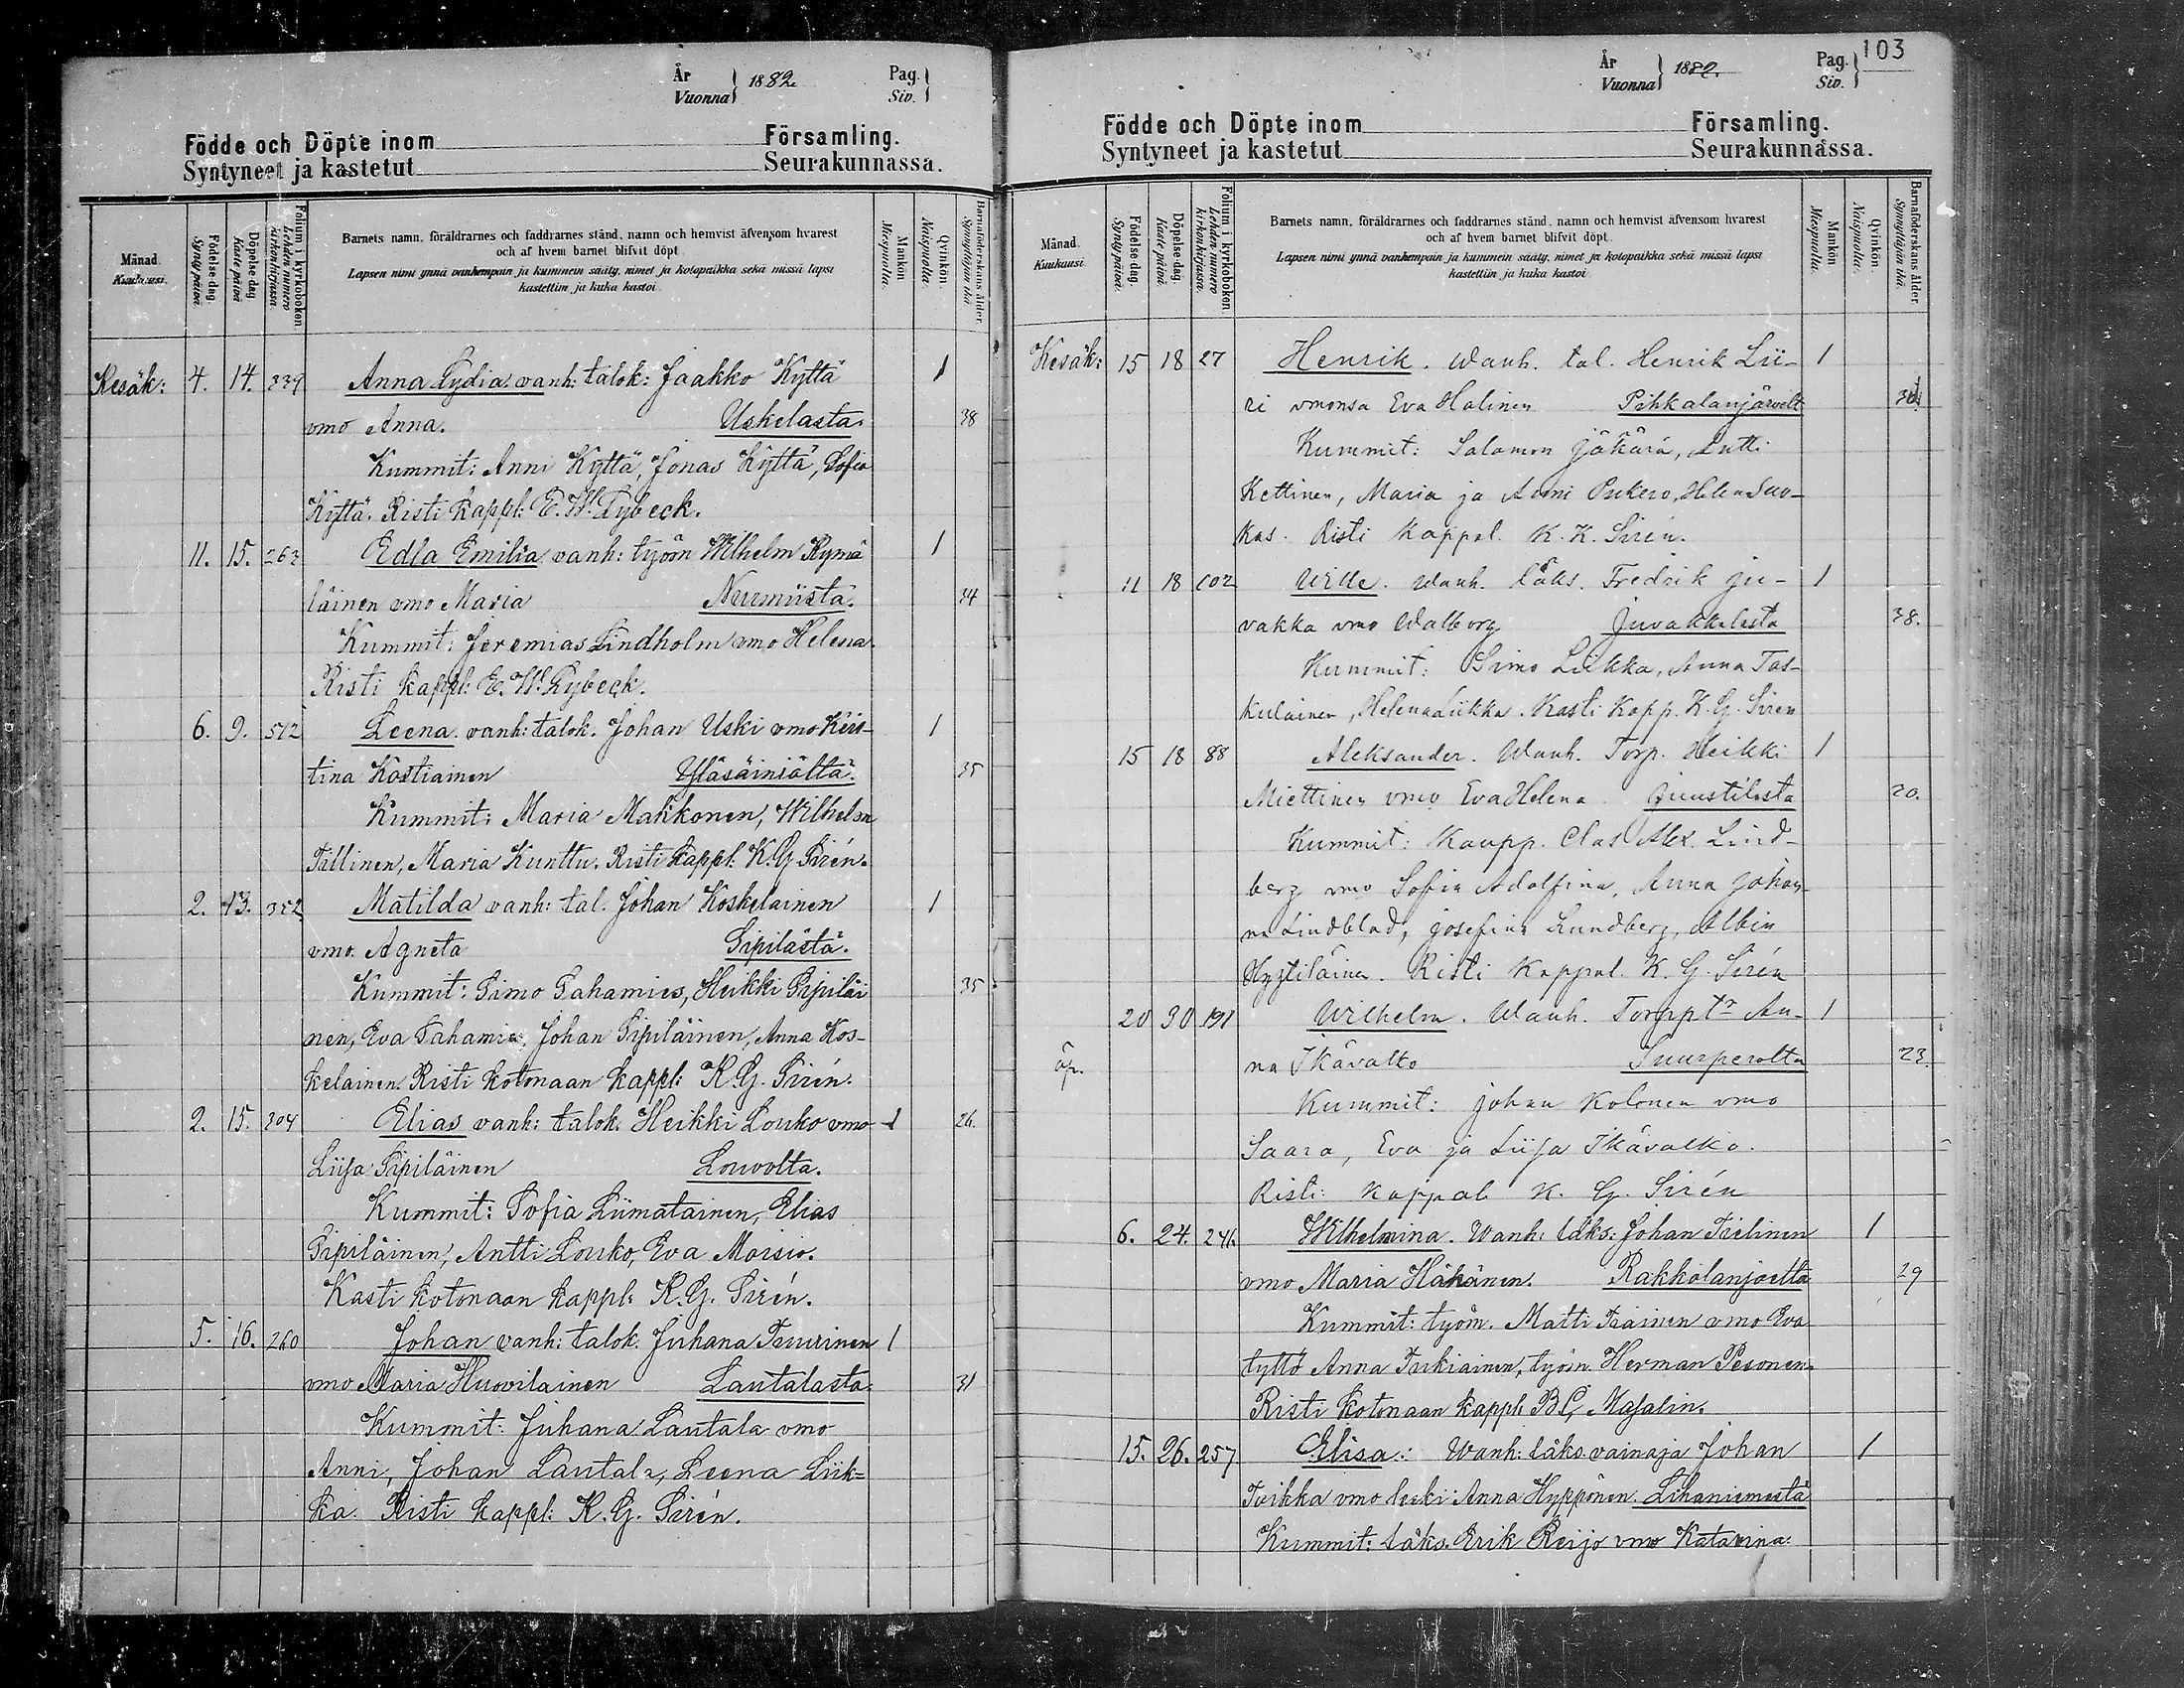 År
Vuonna } 1882.
Pag.
Siv. }
Födde och Döpte inom Församling.
Syntyneet ja kastetut Seurakunnassa.
Månad.
Kuukausi.
Födelsedag.
Syntypäivä.
Döpelsedag.
Kastepäivä.
Folium i kyrkoboken.
Lehden numero kirkonkirjassa.
Barnets namn, föräldrarnes och faddrarnes stånd, namn och hemvist äfvensom hvarest
och af hvem barnet blifvit döpt.
Lapsen nimi ynnä vanhempain ja kummein sääty, nimet ja kotopaikka sekä missä lapsi
kastettiin ja kuka kastoi.
Mankön.
Miespuolia.
Qvinkön.
Naispuolia.
Barnaföderskans ålder.
Synnyttäjän ikä.
Kesäk: 4. 14. 239 Anna Lydia. vanh: talok: Jaakko Kyttä 1
vmo Anna. Uskelasta. 38
Kummit: Anni Kyttä, Jonas Kyttä, Sofia
Kyttä. Risti kappl: E. W. Lybeck.
11. 15. 263 Edla Emilia vanh: työm Wilhelm Kymä 1
läinen vmo Maria Nurmiista. 34
Kummit: Jeremias Lindholm vmo Helena.
Risti kappl: E. W. Lybeck.
6. 9. 512 Leena. vanh: talok. Johan Uski vmo Kris- 1
tina Kostiainen Yläsäiniöltä. 35
Kummit: Maria Makkonen, Wilhelm
Tillinen, Maria Kunttu. Risti kappl: K. G. Sirén.
2. 13. 352 Matilda vanh: tal. Johan Koskelainen 1
vmo. Agneta Sipilästä.
Kummit: Simo Sahamies, Heikki Sipiläi 35
nen, Eva Sahamies, Johan Sipiläinen, Anna Kos-
kelainen. Risti kotonaan kappl: K. G. Sirén.
2. 15. 304 Elias vanh: talok. Heikki Louko vmo 1 26.
Liisa Sipiläinen Louvolta.
Kummit: Sofia Liimatainen, Elias
Sipiläinen, Antti Louko, Eva Moisio.
Kasti kotonaan kappl: K. G. Sirén.
5. 16. 260 Johan vanh: talok. Juhana Tuurinen 1
vmo Maria Huovilainen Lautalasta. 31
Kummit: Juhana Lautala vmo
Anni, Johan Lautala, Leena Liik=
ka. Risti kappl: K. G. Sirén.
103
År
Vuonna } 1882.
Pag.
Siv. }
Födde och Döpte inom Församling.
Syntyneet ja kastetut Seurakunnassa.
Månad.
Kuukausi.
Födelsedag.
Syntypäivä.
Döpelsedag.
Kastepäivä.
Folium i kyrkoboken.
Lehden numero kirkonkirjassa.
Barnets namn, föräldrarnes och faddrarnes stånd, namn och hemvist äfvensom hvarest
och af hvem barnet blifvit döpt.
Lapsen nimi ynnä vanhempain ja kummein sääty, nimet ja kotopaikka sekä missä lapsi
kastettiin ja kuka kastoi.
Mankön.
Miespuolia.
Qvinkön.
Naispuolia.
Barnaföderskans ålder.
Synnyttäjän ikä.
Kesäk: 15 18 27 Henrik. Wanh. tal. Henrik Lii- 1
ri vmonsa Eva Halinen Pihkalanjärvelt
Kummit: Salamon Jäkärä, Antti
Kettinen, Maria ja Anni Pukero, Helena Suo-
kas. Risti kappal. K. K. Sirén.
11 18 102 Wille. Wanh. läks. Fredrik Ju- 1
vakka vmo Walborg Juvakkalasta 38.
Kummit: Simo Liikka, Anna Tas-
kulainen, Helena Liikka. Kasti Kapp. K. G. Sirén
15 18 88 Aleksander. Wanh. Torp. Heikki 1
Miettinen vmo Eva Helena. Juustilasta 20.
Kummit: Kaupp. Clas Alex. Lind-
berg vmo Sofia Adolfina, Anna Johan-
na Lindblad, Josefina Lundberg, Albin
Hyytiläinen. Risti kappal. K. G. Sirén
20 30 191 Wilhelm. Wanh. Torppt:r An- 1
äp. na Ikävalko Suurperolta 23.
Kummit: Johan Kolonen vmo
Saara, Eva ja Liisa Ikävalko.
Risti: kappal K. G. Sirén
6. 24. 241. Wilhelmina. Wanh: läks: Johan Tielinen 1
vmo Maria Häkänen. Rakkolanjoelta 29
Kummit: työm. Matti Iiainen vmo Eva
tyttö Anna Tarkiainen, työm. Herman Pesonen.
Risti kotonaan kappl: B C, Masalin.
15. 26. 257 Elisa.: Wanh: läks. vainaja Johan 1
Toikka vmo leski Anna Hyppönen. Lihaniemestä
Kummit: läks. Erik Reijo vmo Katarina.